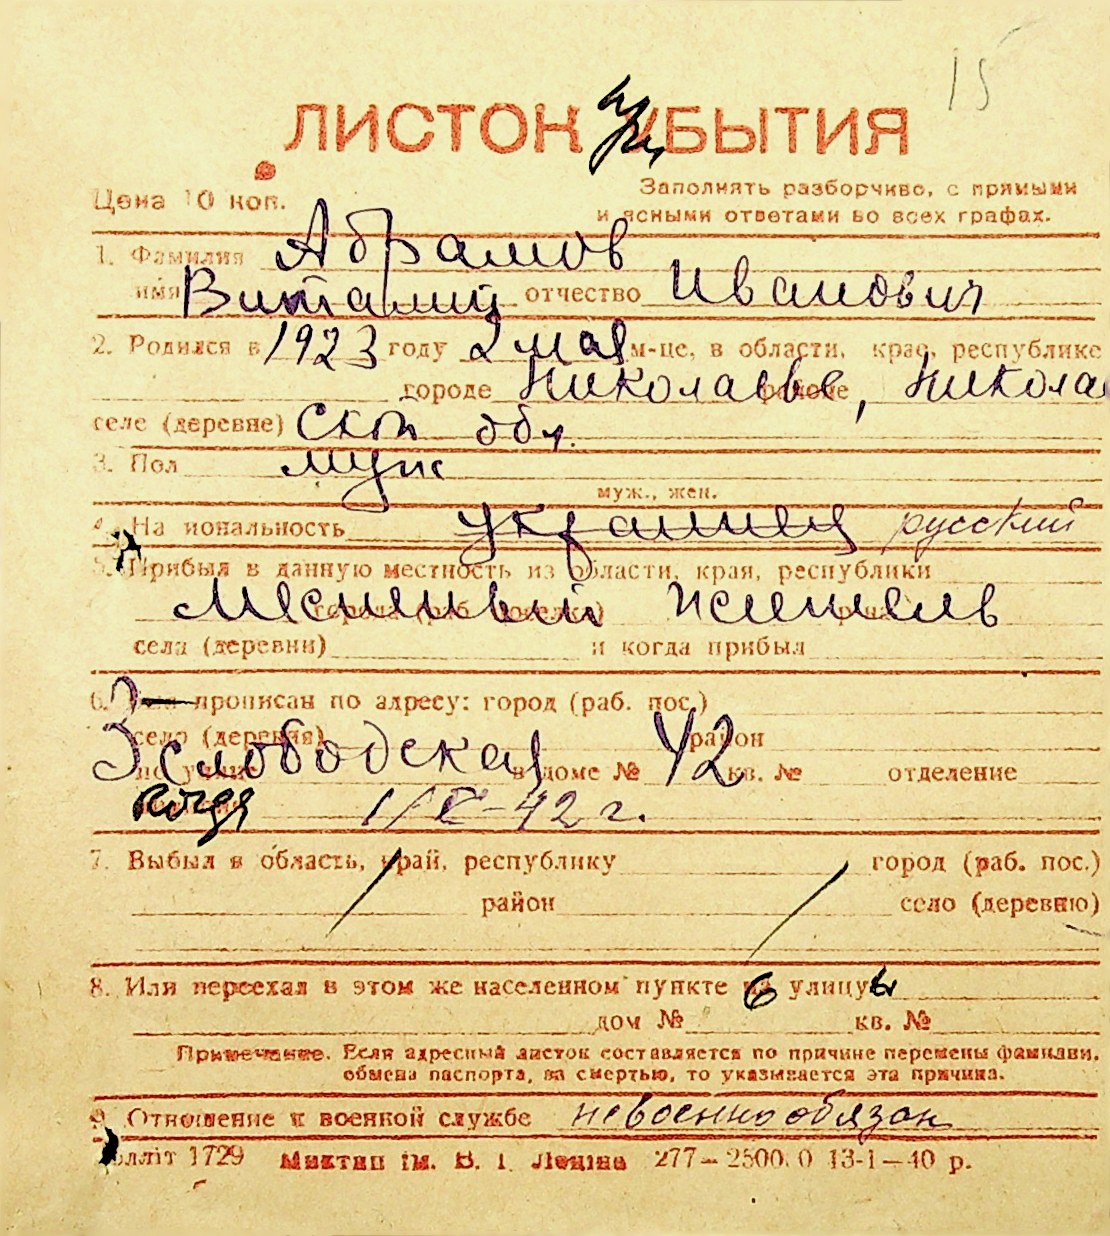 15
ЛИСТОК при УБЫТИЯ
Цена 10 коп.
Заполнять разборчиво, с прямыми
и ясными ответами во всех графах.
1. Фамилия Абрамов
имя Виталий отчество Иванович
2. Родился в 1923 году 2 мая м-це, в области, крае, республике
городе Николаеве, районе Николаев
селе (деревне) ской обл.
3. Пол муж
муж., жен.
4. Национальность украинец русский
5. Прибыл в данную местность из области, края, республики
Местный житель
села (деревни) и когда прибыл
6. прописан по адресу: город (раб. пос.)
село (деревня) район
3 слободская в доме № 42 кв. № отделение
когда 1/X-42 г.
7. Выбыл в область, край, республику город (раб. пос.)
район село (деревню)
8. Или переехал в этом же населенном пункте на улицу
дом № кв. №
Примечание. Если адресный листок составляется по причине перемены фамилии,
обмена паспорта, за смертью, то указывается эта причина.
9. Отношение к военной службе невоеннообязан
1729 ім. В. І. Леніна 277—2500.0 13-1—40 р.